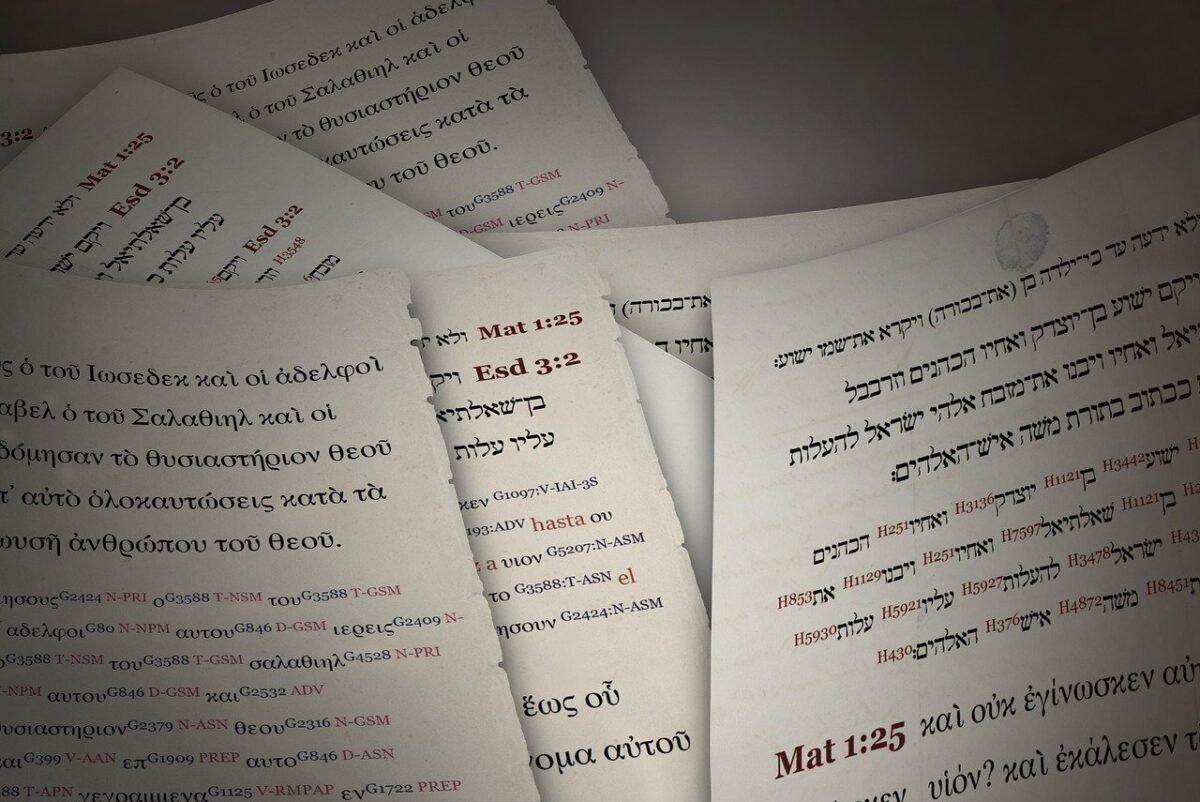 ὁ τοῦ Ιωσεδεκ καὶ οἱ
ὁ τοῦ Σαλαθιηλ καὶ οἱ
τὸ θυσιαστήριον θεοῦ
κατὰ τὰ
τοῦ θεοῦ.
τουG3588 T-GSM
D-GSM ιερειςG2409 N-
N-PRI
3:2
Mat 1:25 ולא ידעה עד
Esd 3:2 ויקם
בן־שאלתיאל
עליו עלות
Esd 3:2 ויקם
H3548
ὁ τοῦ Ιωσεδεκ καὶ οἱ ἀδελφοὶ
ὁ τοῦ Σαλαθιηλ καὶ οἱ
τὸ θυσιαστήριον θεοῦ
αὐτὸ ὁλοκαυτώσεις κατὰ τὰ
ἀνθρώπου τοῦ θεοῦ.
G2424 N-PRI οG3588 T-NSM τουG3588 T-GSM
αδελφοιG80 N-NPM αυτουG846 D-GSM ιερειςG2409 N-
G3588 T-NSM τουG3588 T-GSM σαλαθιηλG4528 N-PRI
-NPM αυτουG846 D-GSM καιG2532 ADV
G2379 N-ASN θεουG2316 N-GSM
G399 V-AAN επG1909 PREP αυτοG846 D-ASN
T-APN γεγραμμεναG1125 V-RMPAP ενG1722 PREP
Mat 1:25 ולא
Esd 3:2
עליו עלות
G1097:V-IAI-3S
193:ADV hasta ου
a υιον G5207:N-ASM
το G3588:T-ASN el
G2424:N-ASM
ἕως οὗ
αὐτοῦ
את־בכורה)
ואחיו
ולא ידעה עד כי־ילדה בן (את־בכורה) ויקרא את־שמו ישוע:
ויקם ישוע בן־יוצדק ואחיו הכהנים וזרבבל
ואחיו ויבנו את־מזבח אלהי ישראל להעלות
ככתוב בתורת משה איש־האלהים:
ישועH3442 בןH1121 יוצדקH3136 ואחיוH251 הכהנים
בןH1121 שאלתיאלH7597 ואחיוH251 ויבנוH1129 אתH853
ישראלH3478 להעלותH5927 עליוH5921 עלותH5930
H8451 משהH4872 אישH376 האלהים:H430
Mat 1:25 καὶ οὐκ ἐγίνωσκεν
υἱόν? καὶ ἐκάλεσεν